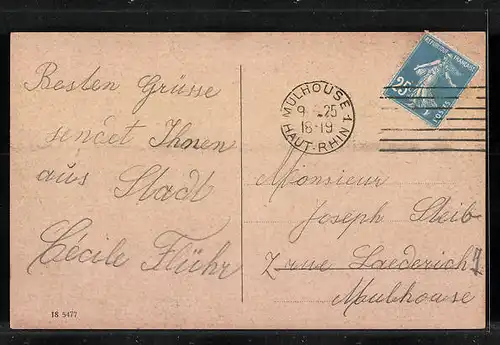 Besten Grüsse
sendet Ihnen
aus Stadt
Cécile Flühr
18 5477
MULHOUSE 1
9 25
18-19
HAUT-RHIN
REPUBLIQUE FRANÇAISE
25c
POSTES
Monsieur
Joseph Steib
7 rue Laederich 7
Mulhouse